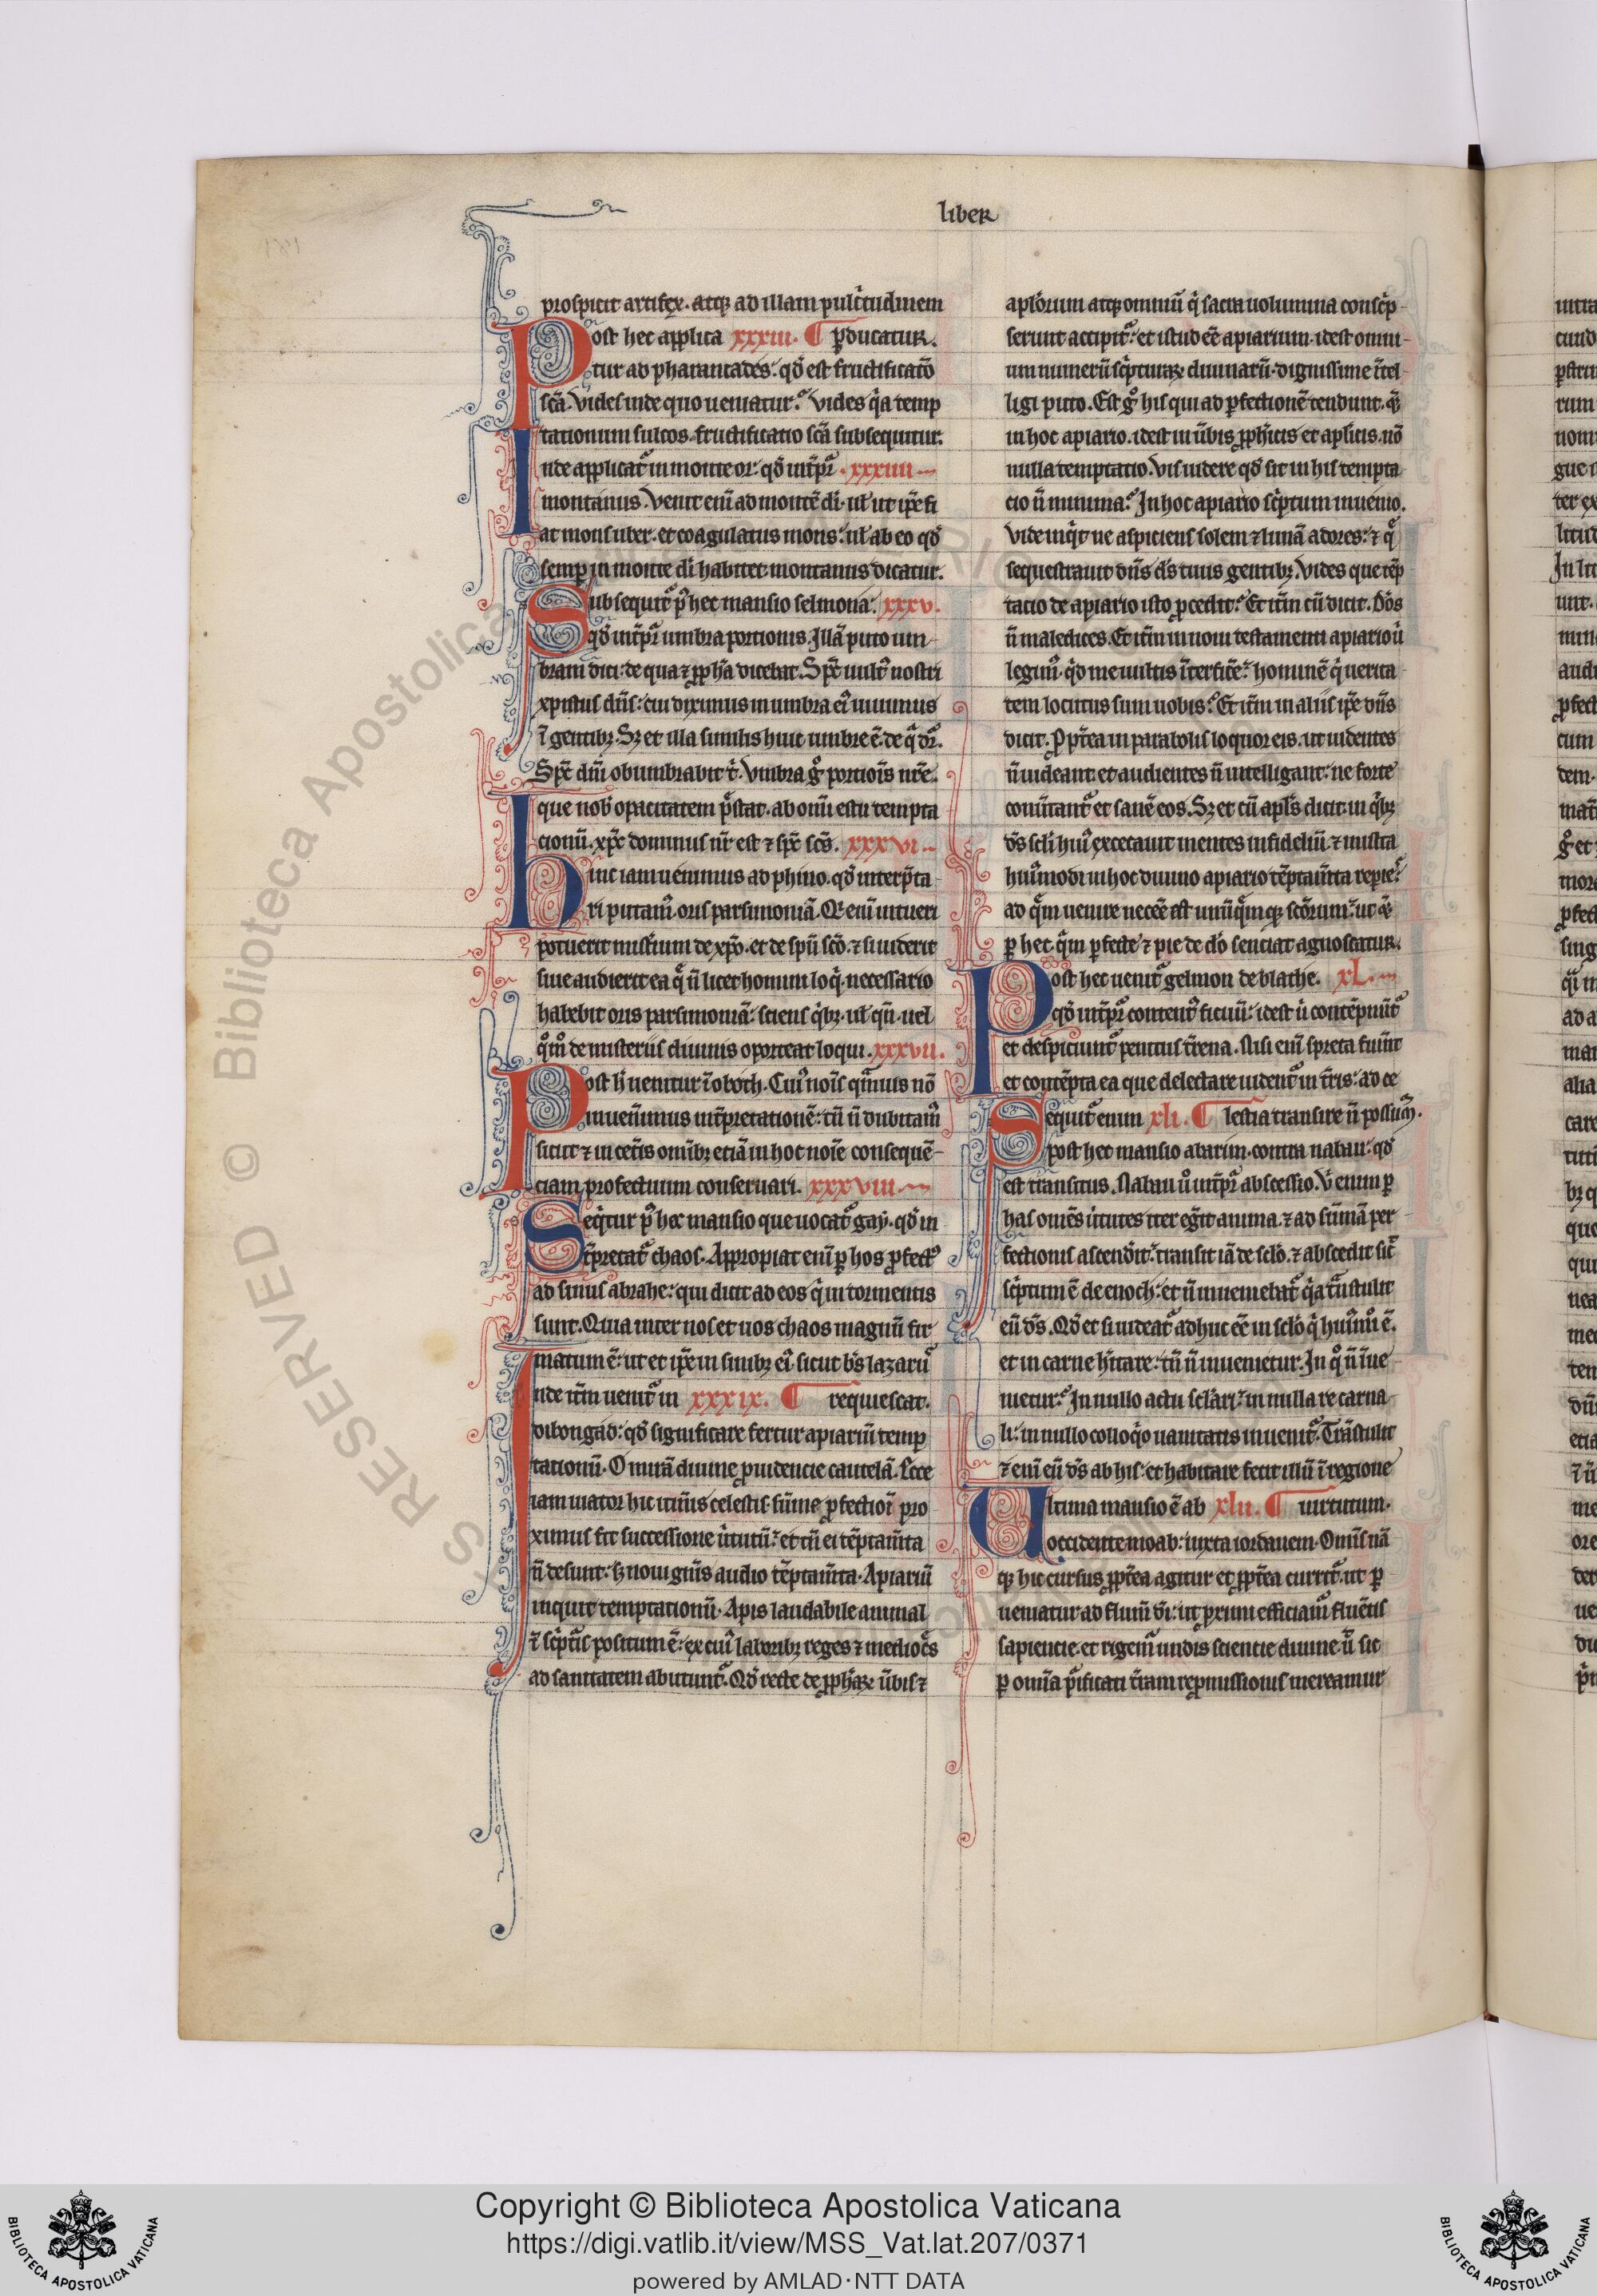 liber
prospicit artifex. atq; ad illam pulc̓tudinem
Post hec applica xxxiii. ¶ p̱ducatur.
tur ad pharancades. qđ est fructificatõ
sc̃a. Vides inde quo ueniatur? Vides q̓a temp
tationum sulcos. fructificatio sc̃a subsequitur.
Inde applicat̃ in monte or. qđ int̃pr̃ . xxxiiii
montanus. Venit eni᷒ ad monte᷒ di᷒. ul̃ ut ip̃e fi
at mons uber. et coagulatus mons. ul̃ ab eo qđ
semp̱ in monte di᷒ habitet montanus dicatur.
Subsequit̃ p᷒ hec mansio selmona. xxxv.
qđ int̃pr̃ umbra portionis. Illã puto um-
bram dici. de qua ⁊ p̱ph̃a dicebat. Sp̃c uult᷒ nostri
xpistus dñs. cui diximus in umbra ei᷒ uiuimus
ĩ gentib;. Sz et illa similis huic umbre ẽ. de q̓ dr̃.
Sp̃c dñi obumbrabit t̓. Vmbra g̊ portiõis nr̃e.
que nob᷒ opacitatem p̃stat. ab omĩ estu tempta
cionũ. xp̃c dominus nr̃ est ⁊ sp̃c sc̃s. xxxvi
hinc iam uenimus ad phino. qđ interp̃ta
ri putam᷒. oris parsimoniã. Q̃ enĩ intueri
potuerit mist̓ium de xp̃o. et de sp̃u sc̃o. ⁊ si uiderit
siue audierit ea q̃ ñ licet homini loq̓. necessario
habebit oris parsimoniã. sciens q̓b;. ul̃ qñ. uel
q̊m̊ de misteriis diuinis oporteat loqui. xxxvii.
Post h̃ uenitur ĩ oboth. Cui᷒ nõis q̃muis nõ
inueñimus int̃pretationẽ. tñ ñ dubitam᷒
sicut ⁊ in cet̃is omĩb; etiã in hoc noĩe consequẽ-
ciam profectuum conseruari. xxxviii.
Seq̓tur p᷒ hec mansio que uocat̃ gay. qđ in
t̃pretat̃ chaos. Appropiat enĩ p̱ hos p̱fect᷒
ad sinus abrahe. qui dicit ad eos q̓ in tormentis
sunt. Quia inter nos et uos chaos magnũ fir
matum ẽ. ut et ip̃e in sinib; ei᷒ sicut b̃s lazarũ
Inde it̃m uenit̃ in xxxix. ¶ requiescat.
dibongad. qđ significare fertur apiariũ temp
tationũ. O mirã diuine p̱uidencie cautelã. Ecce
iam uiator hic itiñis celestis. sũme p̱fectiõi pro
ximus fit successione u̓tutũ. et tñ ei tẽptam̃ta
ñ desunt. sz noui gñis audio tẽptam̃ta. Apiariũ
inquit temptationũ. Apis laudabile animal
ĩ sc̓pt̃is positum ẽ. ex cui᷒ laborib; reges ⁊ medioc̃s
ad sanitatem abutunt̃. Qđ recte de p̱ph̃ar; u̓bis ⁊
apl̃orum atq; omniũ q̓ sacra uolumina consc̓p-
serunt accipit̃. et istud eẽ apiarium. idest omni-
um numerũ sc̓pturar; diuinarũ. dignissime ĩtel-
ligi puto. Est g̊ his qui ad p̱fectionẽ tendunt. q̓;
in hoc apiario. idest in u̓bis p̱ph̃icis et apl̃icis. nõ
nulla temptatio. Vis uidere qđ sit in his tempta
cio ñ minima? In hoc apiario sc̓ptum inuenio.
Vide inq̓t ne aspiciens solem ⁊ lunã adores. ⁊ q̃
sequestrauit dñs ds̃ tuus gentib;. Vides que tẽp
tacio de apiario isto p̱cedit? Et it̃m cũ dicit. Dõs
ñ maledices. Et it̃m in noui testamenti apiario u̓
legim᷒. q̓d me uultis ĩterfic̃e? hominẽ q̓ uerita
tem locutus sum uobis? Et it̃m in aliis ip̃e dñs
dicit. P̱pt̃ea in parabolis loquor eis. ut uidentes
ñ uideant et audientes ñ intelligant. ne forte
conũtant̃ et sanẽ eos. Sz et cũ apl̃s dicit. in q̓b;
ds̃ scl̃i hui᷒ excecauit mentes infideliũ. ⁊ multa
hui᷒modi in hoc diuino apiario tẽptam̃ta repie᷒
ad q̃m uenire necẽe est unũq̃mq; sc̃orum. ut q̓;
p̱ hec q̃m p̱fecte ⁊ pie de dõ senciat agnoscatur.
Post hec uenit̃ gelmon deblathe. xl.
qđ int̃pr̃ content᷒ ficuũ. idest ũ contẽpnũt̃
et despiciunt̃ penitus t̃rena. Nisi enĩ spreta fuĩnt
et contẽpta ea que delectare uident̃ in t̃ris. ad ce
Sequit̃ enim xli. ¶ lestia transire ñ possum᷒.
post hec mansio abarim. contra nabau. qđ
est transitus. Nabau ũ int̃pr̃ abscessio. Vbi enim p̱
has omẽs u̓tutes iter eg̃it anima. ⁊ ad sũmã per
fectionis ascenđit. transit iã de sc̃lo. ⁊ abscedit sic̃
sc̓ptum ẽ de enoch. et ñ inueniebat̃ q̓a t̃nstulit
eũ ds̃. Qđ et si uideat̃ adhuc eẽ in sc̃lo q̓ hui᷒m̊ ẽ.
et in carne h̓itare. tñ ñ inuenietur. In q̊ ñ ĩue
nietur? In nullo actu scl̃ari. in nulla re carna
li. in nullo colloq̓o uanitatis inuenit̃. Trãstulit
⁊ enĩ eũ ds̃ ab his. et habitare fecit illũ ĩ regione
Ultima mansio ẽ ab xlii. ¶ uirtutum.
occidente moab. iuxta iordanem. Omĩs nã
q; hic cursus p̱pt̃ea agitur et p̱pt̃ea currit̃. ut p̱
ueniatur ad flum̃ di᷒. ut p̱rimi efficiam᷒ fluẽtis
sapiencie. et rigem᷒ undis sciencie diuine. ũ sic
p̱ omĩa p̓ificati t̃ram rep̱missionis mereamur
Copyright © Biblioteca Apostolica Vaticana
https://digi.vatlib.it/view/MSS_Vat.lat.207/0371
powered by AMLAD·NTT DATA